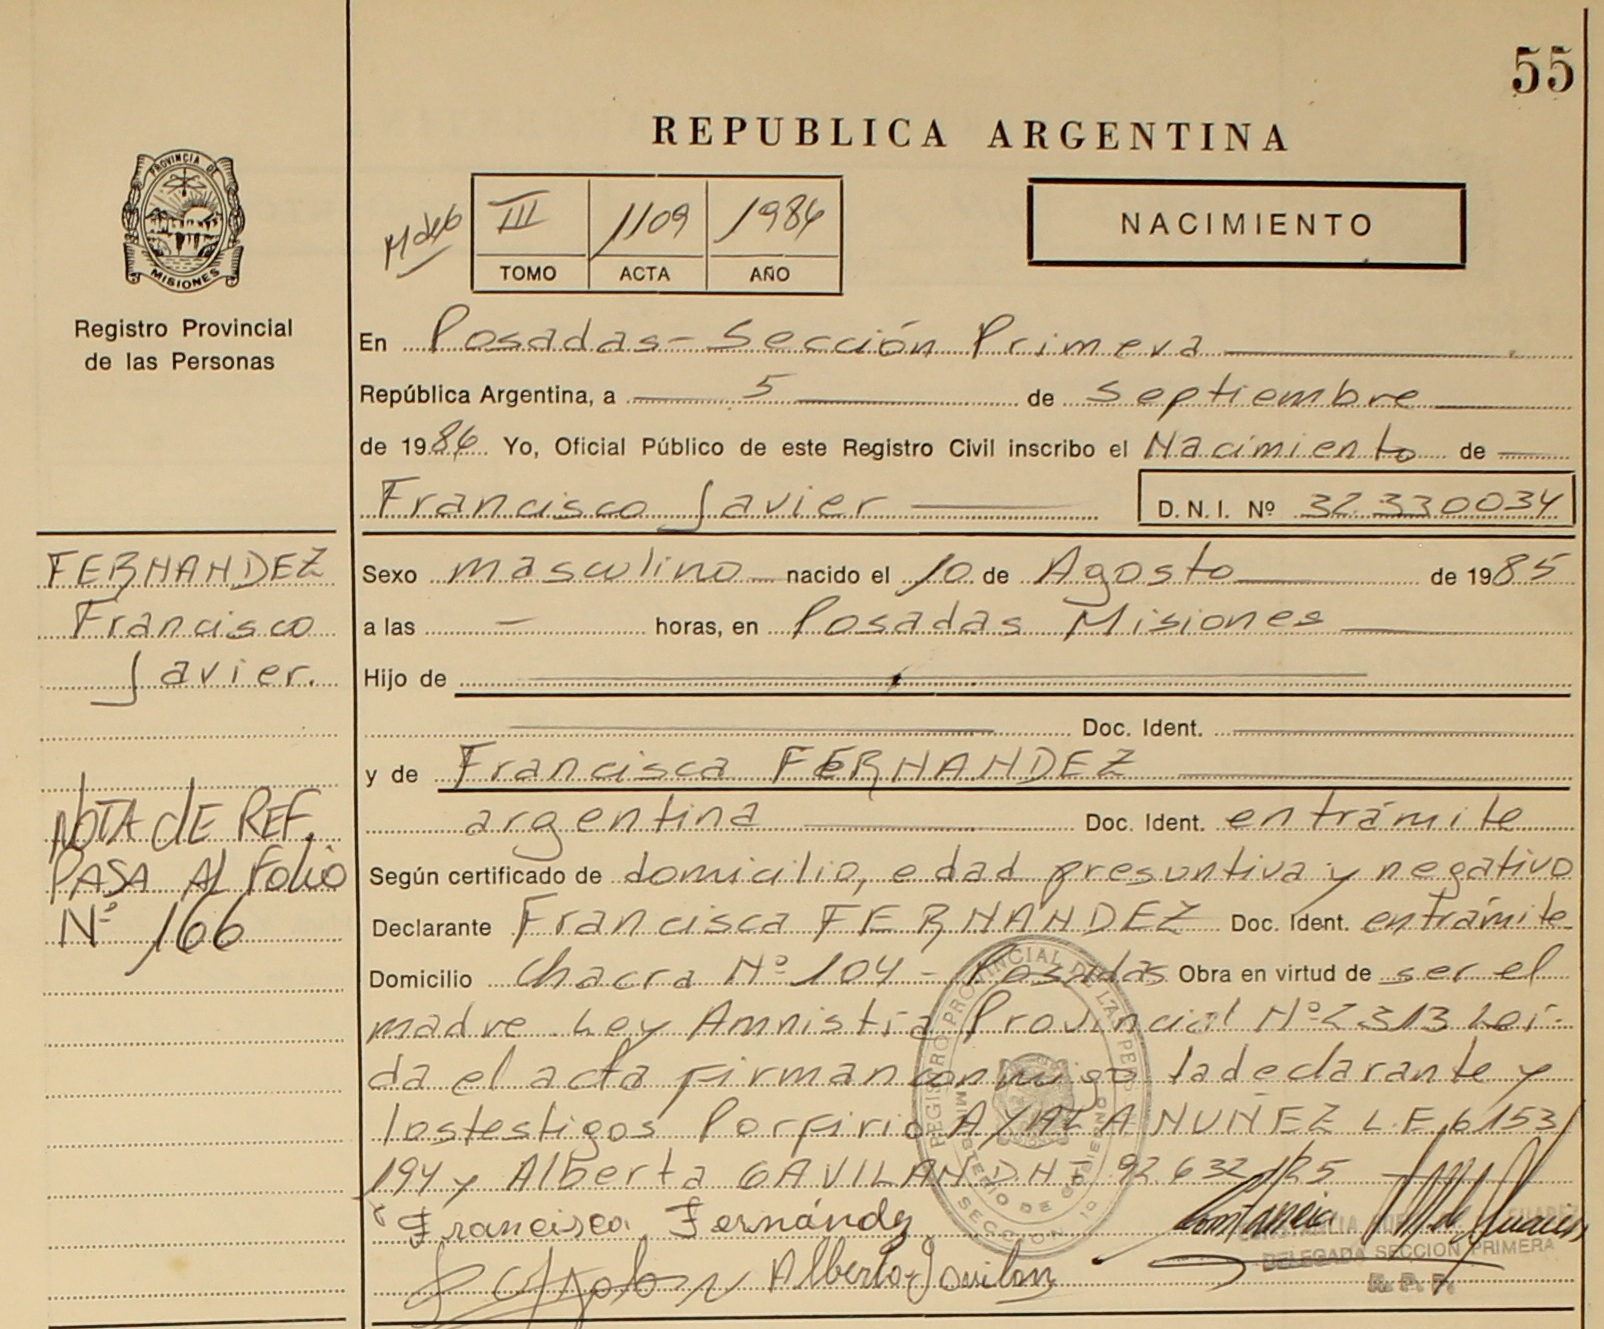 55
REPUBLICA ARGENTINA
PROVINCIA DE
MISIONES
Registro Provincial
de las Personas
III 1109 1986
TOMO ACTA AÑO
NACIMIENTO
En Posadas - Sección Primera
República Argentina, a 5 de Septiembre
de 1986. Yo, Oficial Público de este Registro Civil inscribo el Nacimiento de
Francisco Javier D.N.I. Nº 32.330034
FERNANDEZ
Francisco
Javier.
Sexo masculino nacido el 10 de Agosto de 1985
a las - horas, en Posadas Misiones
Hijo de
Doc. Ident.
y de Francisca FERNANDEZ
argentina Doc. Ident. en trámite
NOTA dE REF.
PASA AL FOLIO
Nº 166
Según certificado de domicilio, edad presuntiva y negativo
Declarante Francisca FERNANDEZ Doc. Ident. en trámite
Domicilio Chacra Nº 104 - Posadas Obra en virtud de ser el
madre. Ley Amnistía Provincial Nº 2313 Leí-
da el acta firman conmigo la declarante y
los testigos Porfirio AYALA NUÑEZ L.E. 6153
194 y Alberta GAVILAN D.N.I. 92.632.125
Francisca Fernández
Alberta Gavilan
REGISTRO PROVINCIAL DE LAS PE
MINISTERIO DE GOBIERNO
SECCION 1a
DELEGADA SECCION PRIMERA
R. P. P.